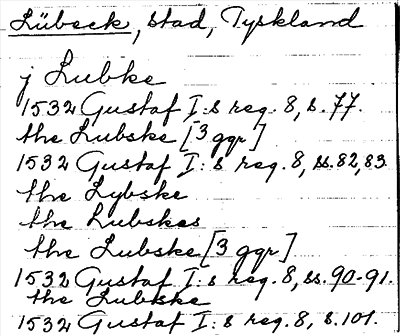 Lübeck, stad, Tyskland
j Lubke
1532 Gustaf I:s reg. 8, s. 77.
the Lubske [3 ggr]
1532 Gustaf I:s reg. 8, ss. 82, 83
the Lybske
the Lubskes
the Lubske [3 ggr]
1532 Gustaf I:s reg. 8, ss. 90-91.
the Lubkske
1532 Gustaf I:s reg. 8, s. 101.